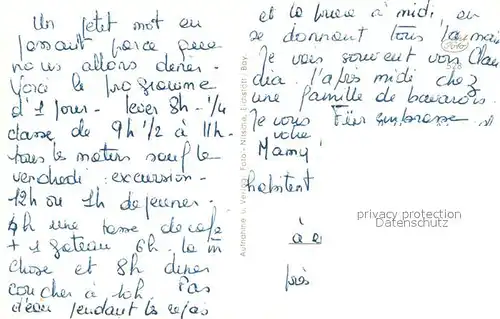 Un petit mot en
passant parce que
nous allons diner.
Voici le programme
d'1 jour. lever 8h - 1/4
classe de 9h 1/2 à 11h.
tous les matins sauf le
vendredi : excursion.
12h ou 1h dejeuner.
4h une tasse de café
+ 1 gateau 6h. la m
chose et 8h diner
coucher à 10h. Pas
d'eau pendant les repas
et la prière à midi, en
se donnant tous la main
Je vais souvent voir Clau
dia. l'après midi chez
une famille de bavarois.
Je vous embrasse
votre
Mamy
habitent
à
près
Aufnahme u. Verlag: Foto - Bay.
privacy protection
Datenschutz